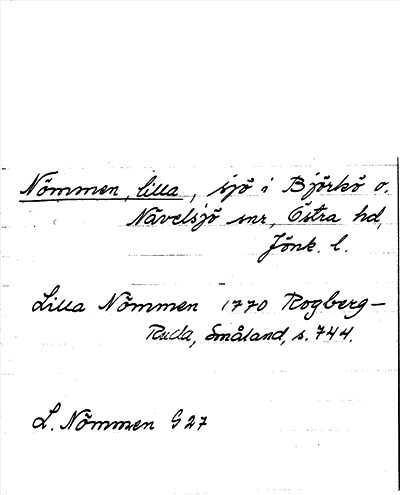 Nömmen, lilla, sjö i Björkö o.
Nävelsjö snr, Östra hd,
Jönk. l.
Lilla Nömmen 1770 Rogberg—
Ruda, Småland, s. 744.
L. Nömmen G 27